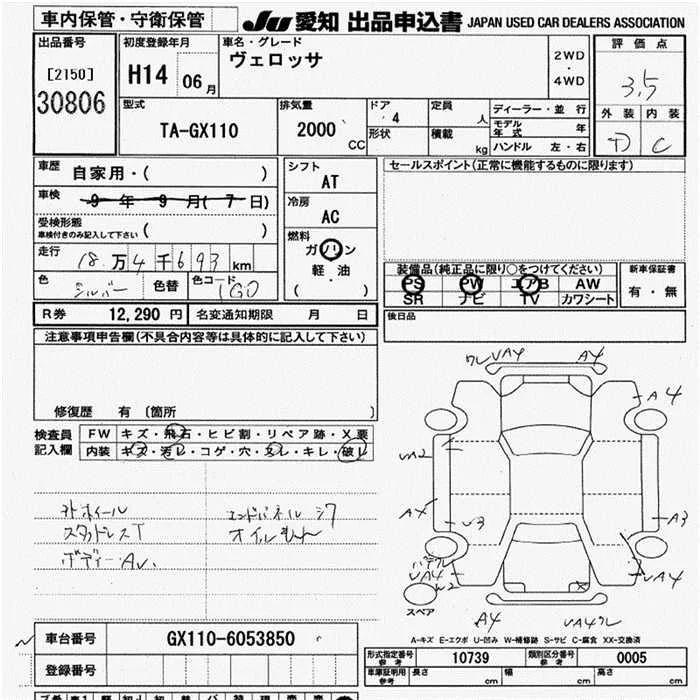 車内保管・守衛保管
JU 愛知 出品申込書 JAPAN USED CAR DEALERS ASSOCIATION
出品番号
[2150]
30806
初度登録年月
H14 06月
車名・グレード
ヴェロッサ
2WD
・
4WD
評価点
3.5
外装 内装
D C
型式
TA-GX110
排気量
2000 CC
ドア
4
形状
定員
人
積載
kg
ディーラー・並行
モデル年式 年
ハンドル 左・右
車歴 自家用・( )
車検 9年9月(7日)
受検形態
車検付きのみ記入して下さい ( )
走行 18万4千693km
色 シルバー 色替 色コード 1G0
シフト
AT
冷房
AC
燃料
ガソリン
軽・油
( )
セールスポイント(正常に機能するものに限ります)
装備品(純正品に限り○をつけてください)
PS PW エアB AW
SR ナビ TV カワシート
新車保証書
有・無
後日品
R券 12,290円 名変通知期限 月 日
注意事項申告欄(不具合内容等は具体的に記入して下さい)
修復歴 有 〔箇所 〕
検査員
記入欄
FW キズ・飛石・ヒビ割・リペア跡・X要
内装 キズ・汚レ・コゲ・穴・スレ・キレ・破レ
外ホイール
スタッドレスT
ボディーAU.
エンドパネルシワ
ワレUA4 A4
A4
UA2
A4
U3
A3
UA4
W2
UA4
A4
UA4ワレ
スペア
A-キズ E-エクボ U-凹み W-補修跡 S-サビ C-腐食 XX-交換済
車台番号 GX110-6053850
登録番号
形式指定番号
参考
10739
類別区分番号
参考
0005
車庫証明用
参考
長さ cm 幅 cm 高さ cm